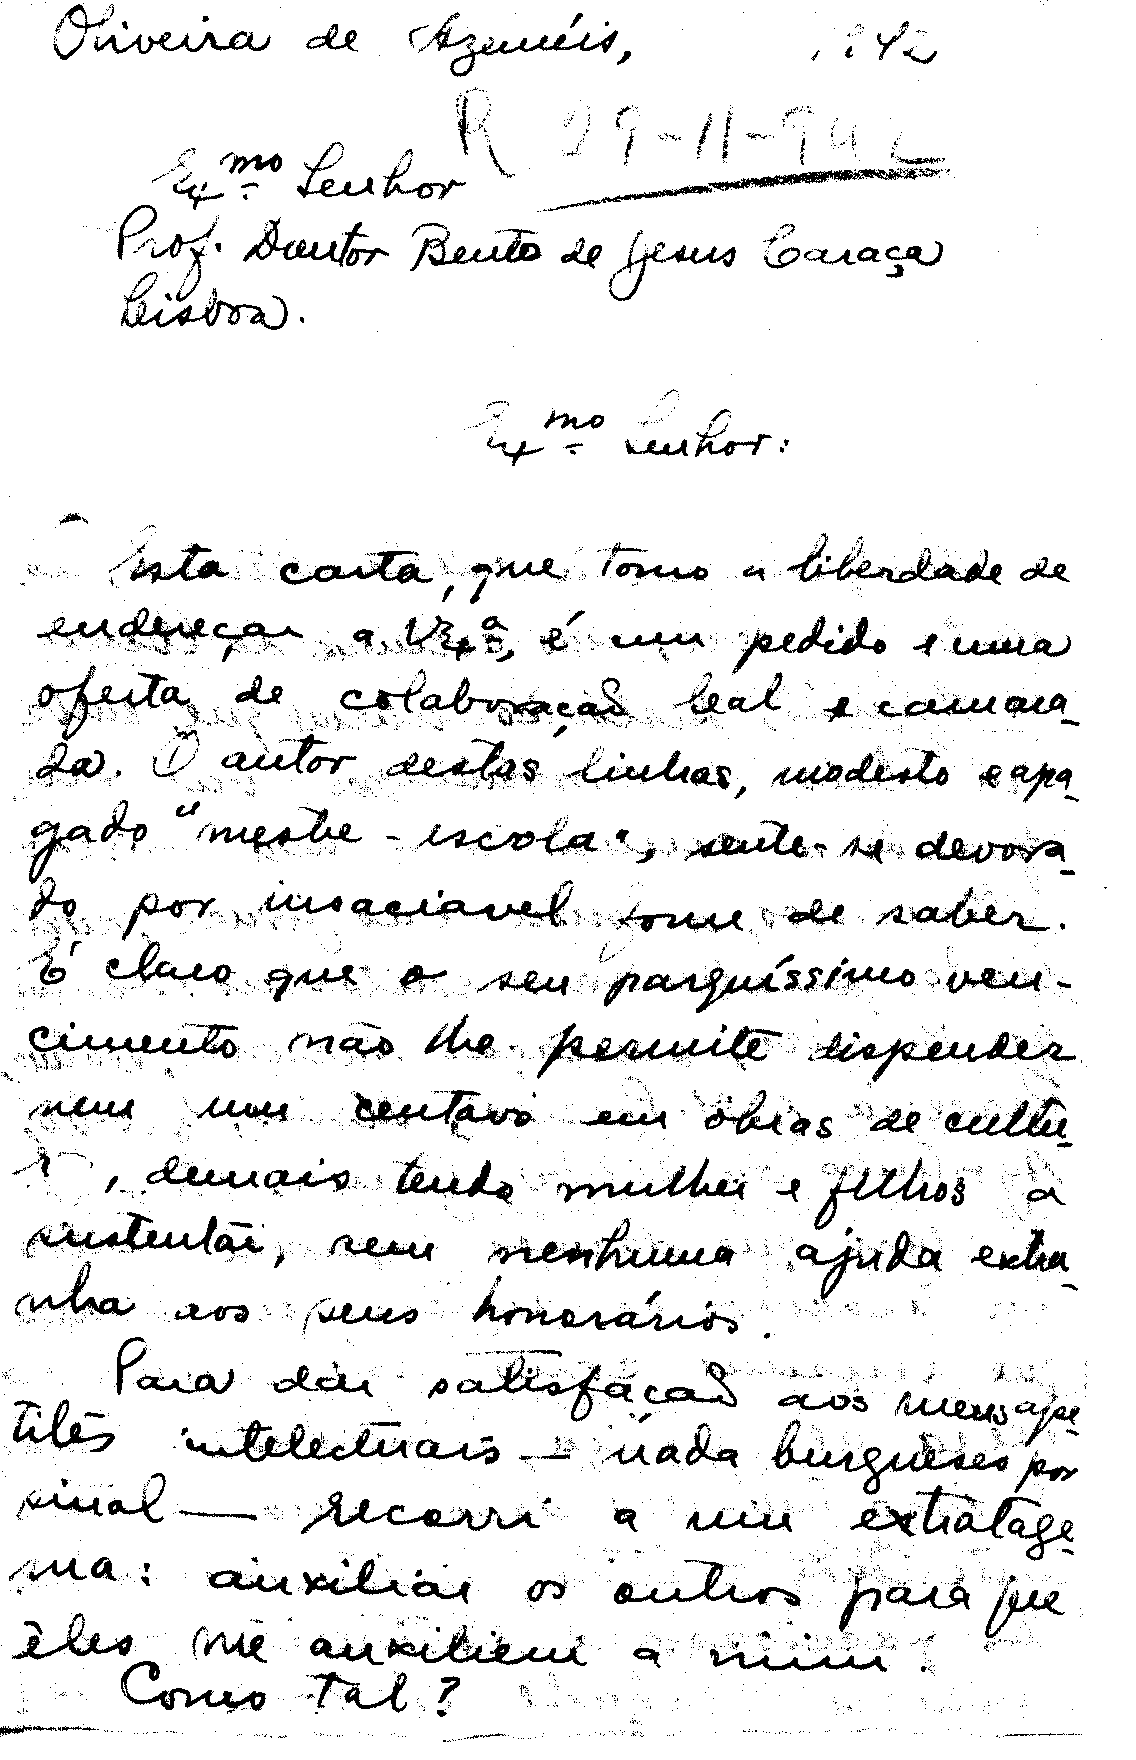 Oliveira de Azeméis, 1942
R 29-11-942
Ex.mo Senhor
Prof. Doutor Bento de Jesus Caraça
Lisboa.
Ex.mo Senhor:
Esta carta, que tomo a liberdade de
endereçar a V. Ex.ª, é um pedido e uma
oferta de colaboração leal e camara-
da. O autor destas linhas, modesto e apa-
gado "mestre-escola", sente-se devora-
do por insaciavel fome de saber.
É claro que o seu parquíssimo ven-
cimento não lhe permite dispender
nem um centavo em obras de cultu-
ra, demais tendo mulher e filhos a
sustentar, sem nenhuma ajuda extra-
nha aos seus honorários.
Para dar satisfação aos meus ape-
tites intelectuais — nada burgueses por
sinal — recorri a um extratage-
ma: auxiliar os outros para que
êles me auxiliem a mim.
Como tal?